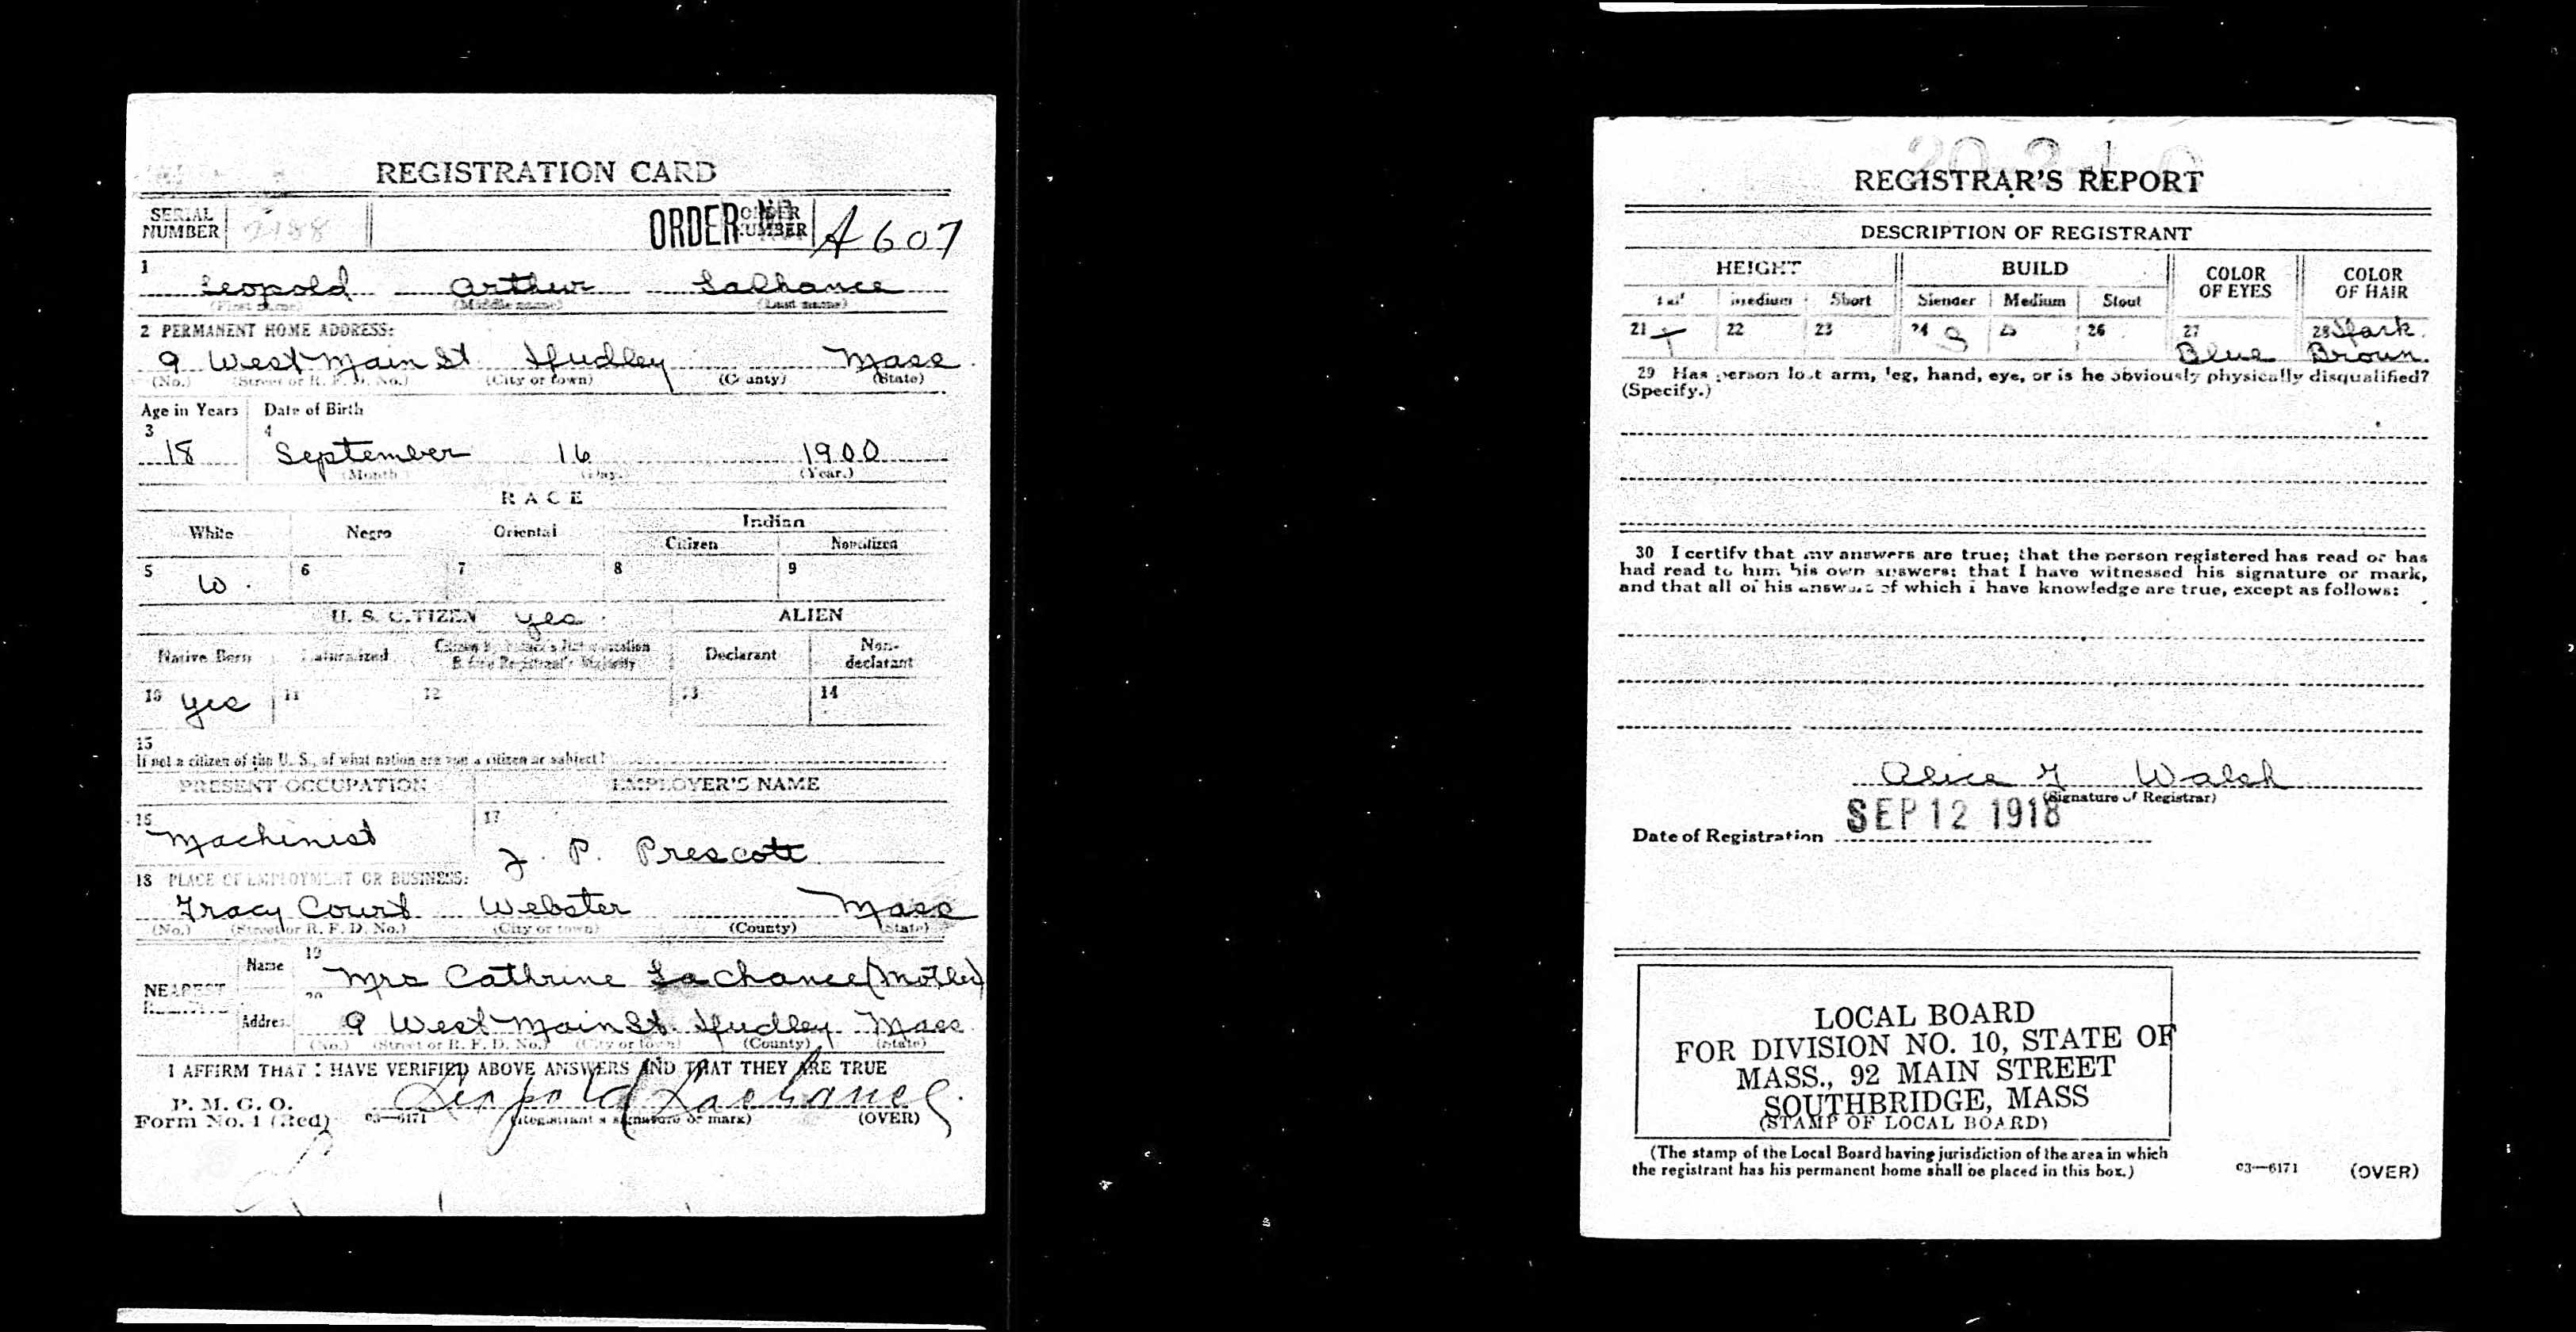 REGISTRATION CARD
SERIAL NUMBER 2188 ORDER NUMBER A 607
1 Leopold Arthur LaChance
(First name) (Middle name) (Last name)
2 PERMANENT HOME ADDRESS:
9 West Main St. Dudley Mass
(No.) (Street or R. F. D. No.) (City or town) (County) (State)
Age in Years Date of Birth
3 4
18 September 16 1900
(Month.) (Day.) (Year.)
RACE
White Negro Oriental Indian
Citizen Noncitizen
5 W. 6 7 8 9
U. S. CITIZEN yes ALIEN
Native Born Naturalized Citizen by Father's Naturalization Before Registrant's Majority Declarant Non-declarant
10 yes 11 12 13 14
15
If not a citizen of the U. S., of what nation are you a citizen or subject?
PRESENT OCCUPATION EMPLOYER'S NAME
16 Machinist 17 J. P. Prescott
18 PLACE OF EMPLOYMENT OR BUSINESS:
Tracy Court Webster Mass
(No.) (Street or R. F. D. No.) (City or town) (County) (State)
NEAREST RELATIVE Name 19 Mrs Cathrine LaChance (Mother)
Address 20 9 West Main St. Dudley Mass
(No.) (Street or R. F. D. No.) (City or town) (County) (State)
I AFFIRM THAT I HAVE VERIFIED ABOVE ANSWERS AND THAT THEY ARE TRUE
P. M. G. O.
Form No. 1 (Red) 03—6171 Leopold Lachance (Registrant's signature or mark) (OVER)
REGISTRAR'S REPORT
DESCRIPTION OF REGISTRANT
HEIGHT BUILD COLOR OF EYES COLOR OF HAIR
Tall Medium Short Slender Medium Stout
21 T 22 23 24 S 25 26 27 Blue 28 Dark Brown.
29 Has person lost arm, leg, hand, eye, or is he obviously physically disqualified?
(Specify.)
30 I certify that my answers are true; that the person registered has read or has
had read to him his own answers; that I have witnessed his signature or mark,
and that all of his answers of which I have knowledge are true, except as follows:
Alice G Walsh
(Signature of Registrar)
Date of Registration SEP 12 1918
LOCAL BOARD
FOR DIVISION NO. 10, STATE OF
MASS., 92 MAIN STREET
SOUTHBRIDGE, MASS
(STAMP OF LOCAL BOARD)
(The stamp of the Local Board having jurisdiction of the area in which
the registrant has his permanent home shall be placed in this box.)
03—6171 (OVER)